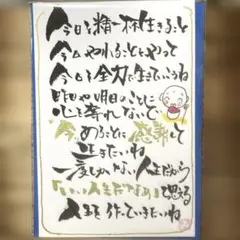 今日を精一杯生きること
今日やれることをやって
今日を全力で生きていこうね
昨日や明日のことに
心を奪われないで
“今”あることに感謝して
生きたいね
愛しかない人生だから
「いい人生だなぁ」と思える
人生を作っていきたいね